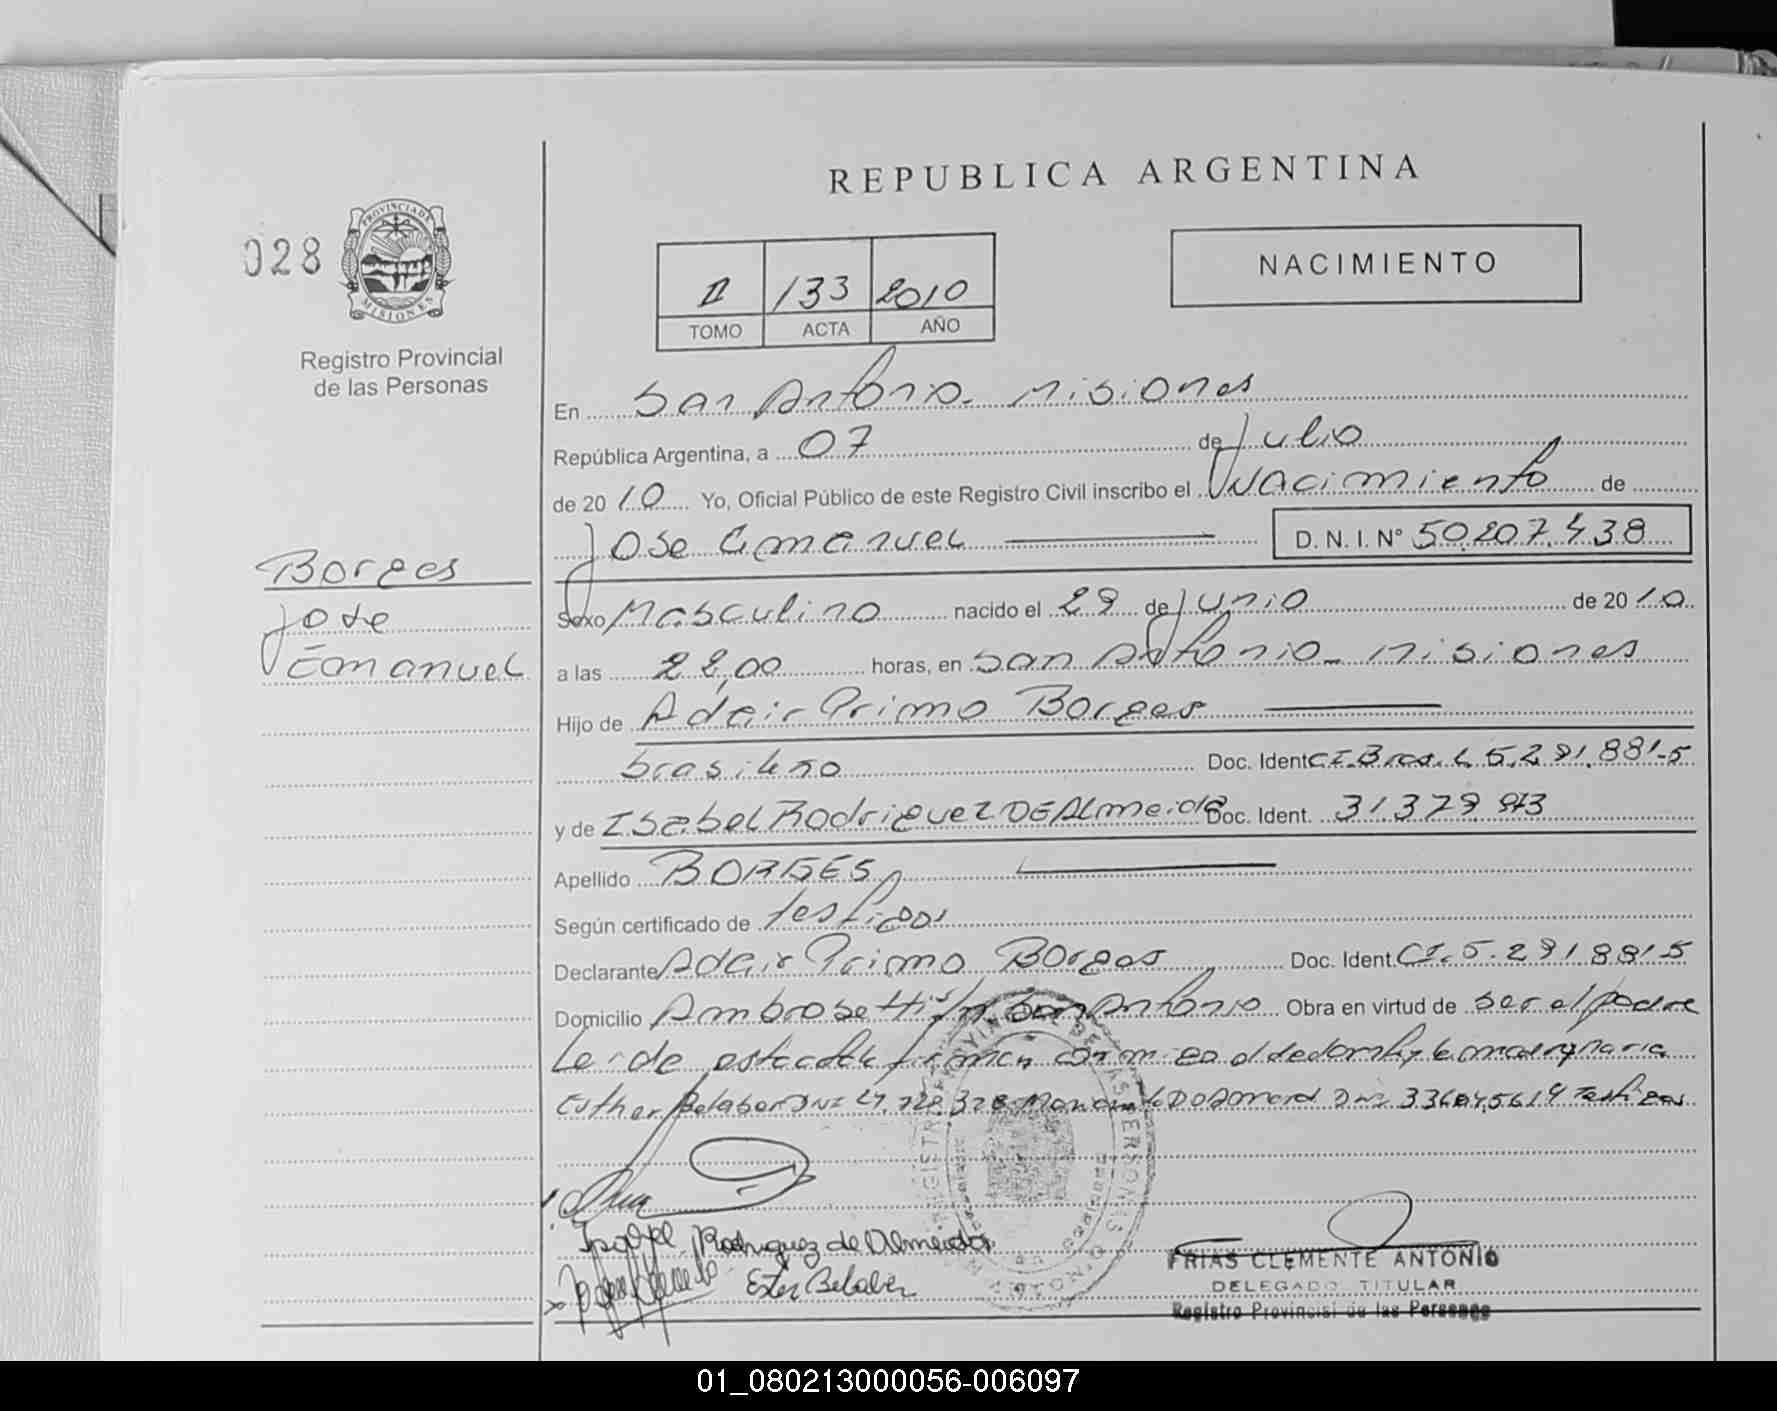 REPUBLICA ARGENTINA
028
PROVINCIA DE MISIONES
Registro Provincial
de las Personas
II 133 2010
TOMO ACTA AÑO
NACIMIENTO
En San Antonio - Misiones
República Argentina, a 07 de Julio
de 2010 Yo, Oficial Público de este Registro Civil inscribo el Nacimiento de
Jose Emanuel D.N.I. Nº 50.207.438
Borges
Jose
Emanuel
Sexo Masculino nacido el 29 de Junio de 2010
a las 22,00 horas, en San Antonio - Misiones
Hijo de Adair Primo Borges
brasileño Doc. Ident. C.I. Bras. 5.291.881-5
y de Isabel Rodriguez DE Almeida Doc. Ident. 31.379.973
Apellido BORGES
Según certificado de testigos
Declarante Adair Primo Borges Doc. Ident. CI. 5.291881-5
Domicilio Ambrosetti s/n San Antonio Obra en virtud de ser el padre
Leida esta acta firman conmigo el dedarante y la madre
Esther Belaber DNI Testigos
Isabel Rodriguez de Almeida
Ester Belaber
FRIAS CLEMENTE ANTONIO
DELEGADO TITULAR
Registro Provincial de las Personas
01_080213000056-006097